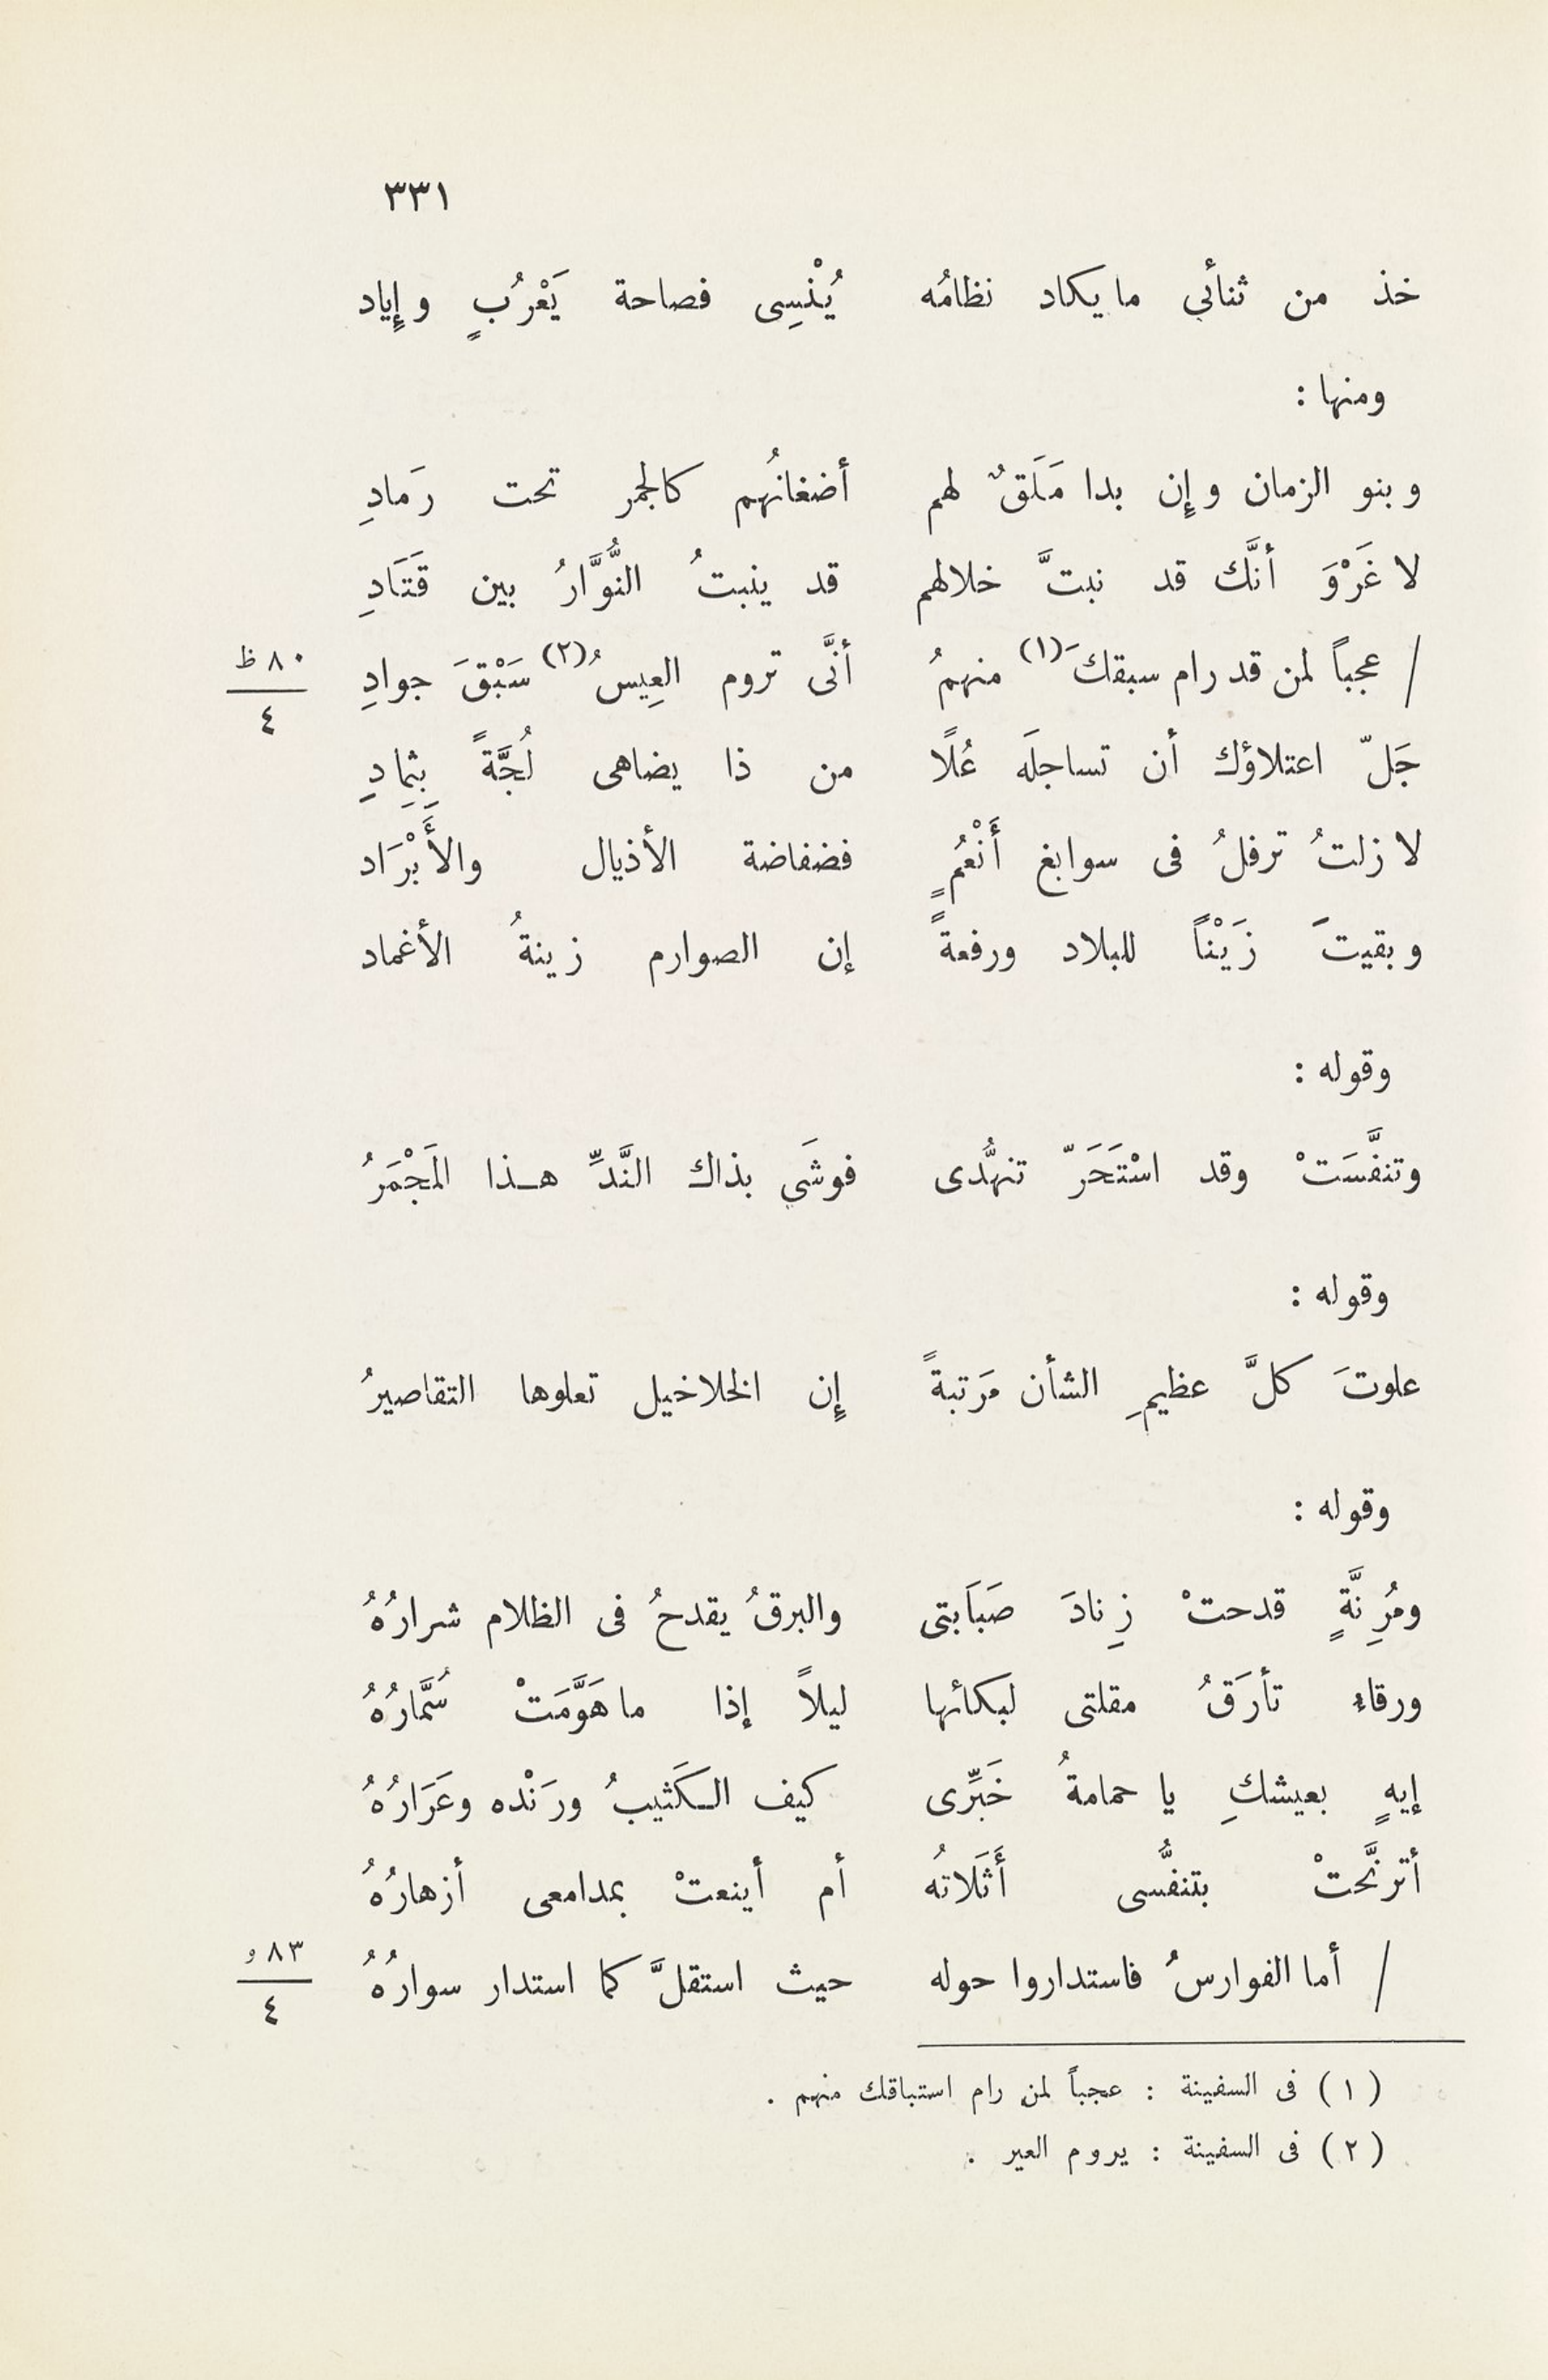 ٣٣١
خذ من ثنائي ما يكاد نظامُه يُنْسِى فصاحة يَعْرُبٍ وإِياد
ومنها :
وبنو الزمان وإِن بدا مَلَقٌ لهم أضغانُهم كالجمر تحت رَمادِ
لا غَرْوَ أنَّك قد نبتَّ خلالهم قد ينبتُ النُّوَّارُ بين قَتَادِ
/ عجباً لمن قد رام سبقكَ (١) منهمُ أنَّى تروم العِيسُ (٢) سَبْقَ جوادِ ٨٠ ظ / ٤
جَلّ اعتلاؤك أن تساجلَه عُلًا من ذا يضاهى لُجَّةً بِثِمادِ
لا زلتُ ترفلُ فى سوابغ أَنْعُمٍ فضفاضة الأذيال والأَبْرَاد
وبقيتَ زَيْناً للبلاد ورفعةً إن الصوارم زينةُ الأغماد
وقوله :
وتنفَّسَتْ وقد اسْتَحَرّ تنهُّدى فوشَي بذاك النَّدِّ هـذا المَجْمَرُ
وقوله :
علوتَ كلَّ عظيمِ الشأن مَرتبةً إِن الخلاخيل تعلوها التقاصيرُ
وقوله :
ومُرِنَّةٍ قدحتْ زِنادَ صَبَابتى والبرقُ يقدحُ فى الظلام شرارُهُ
ورقاءِ تأرَقُ مقلتى لبكائها ليلاً إذا ما هَوَّمَتْ سُمَّارُهُ
إيهٍ بعيشكِ يا حمامةُ خَبِّرى كيف الـكَثيبُ ورَنْده وعَرَارُهُ
أترنَّحتْ بتنفُّسى أَثَلاتُه أم أينعتْ بمدامعى أزهارُهُ
/ أما الفوارسُ فاستداروا حوله حيث استقلَّ كما استدار سوارُهُ ٨٣ و / ٤
(١) فى السفينة : عجباً لمن رام استباقك منهم .
(٢) فى السفينة : يروم العير .